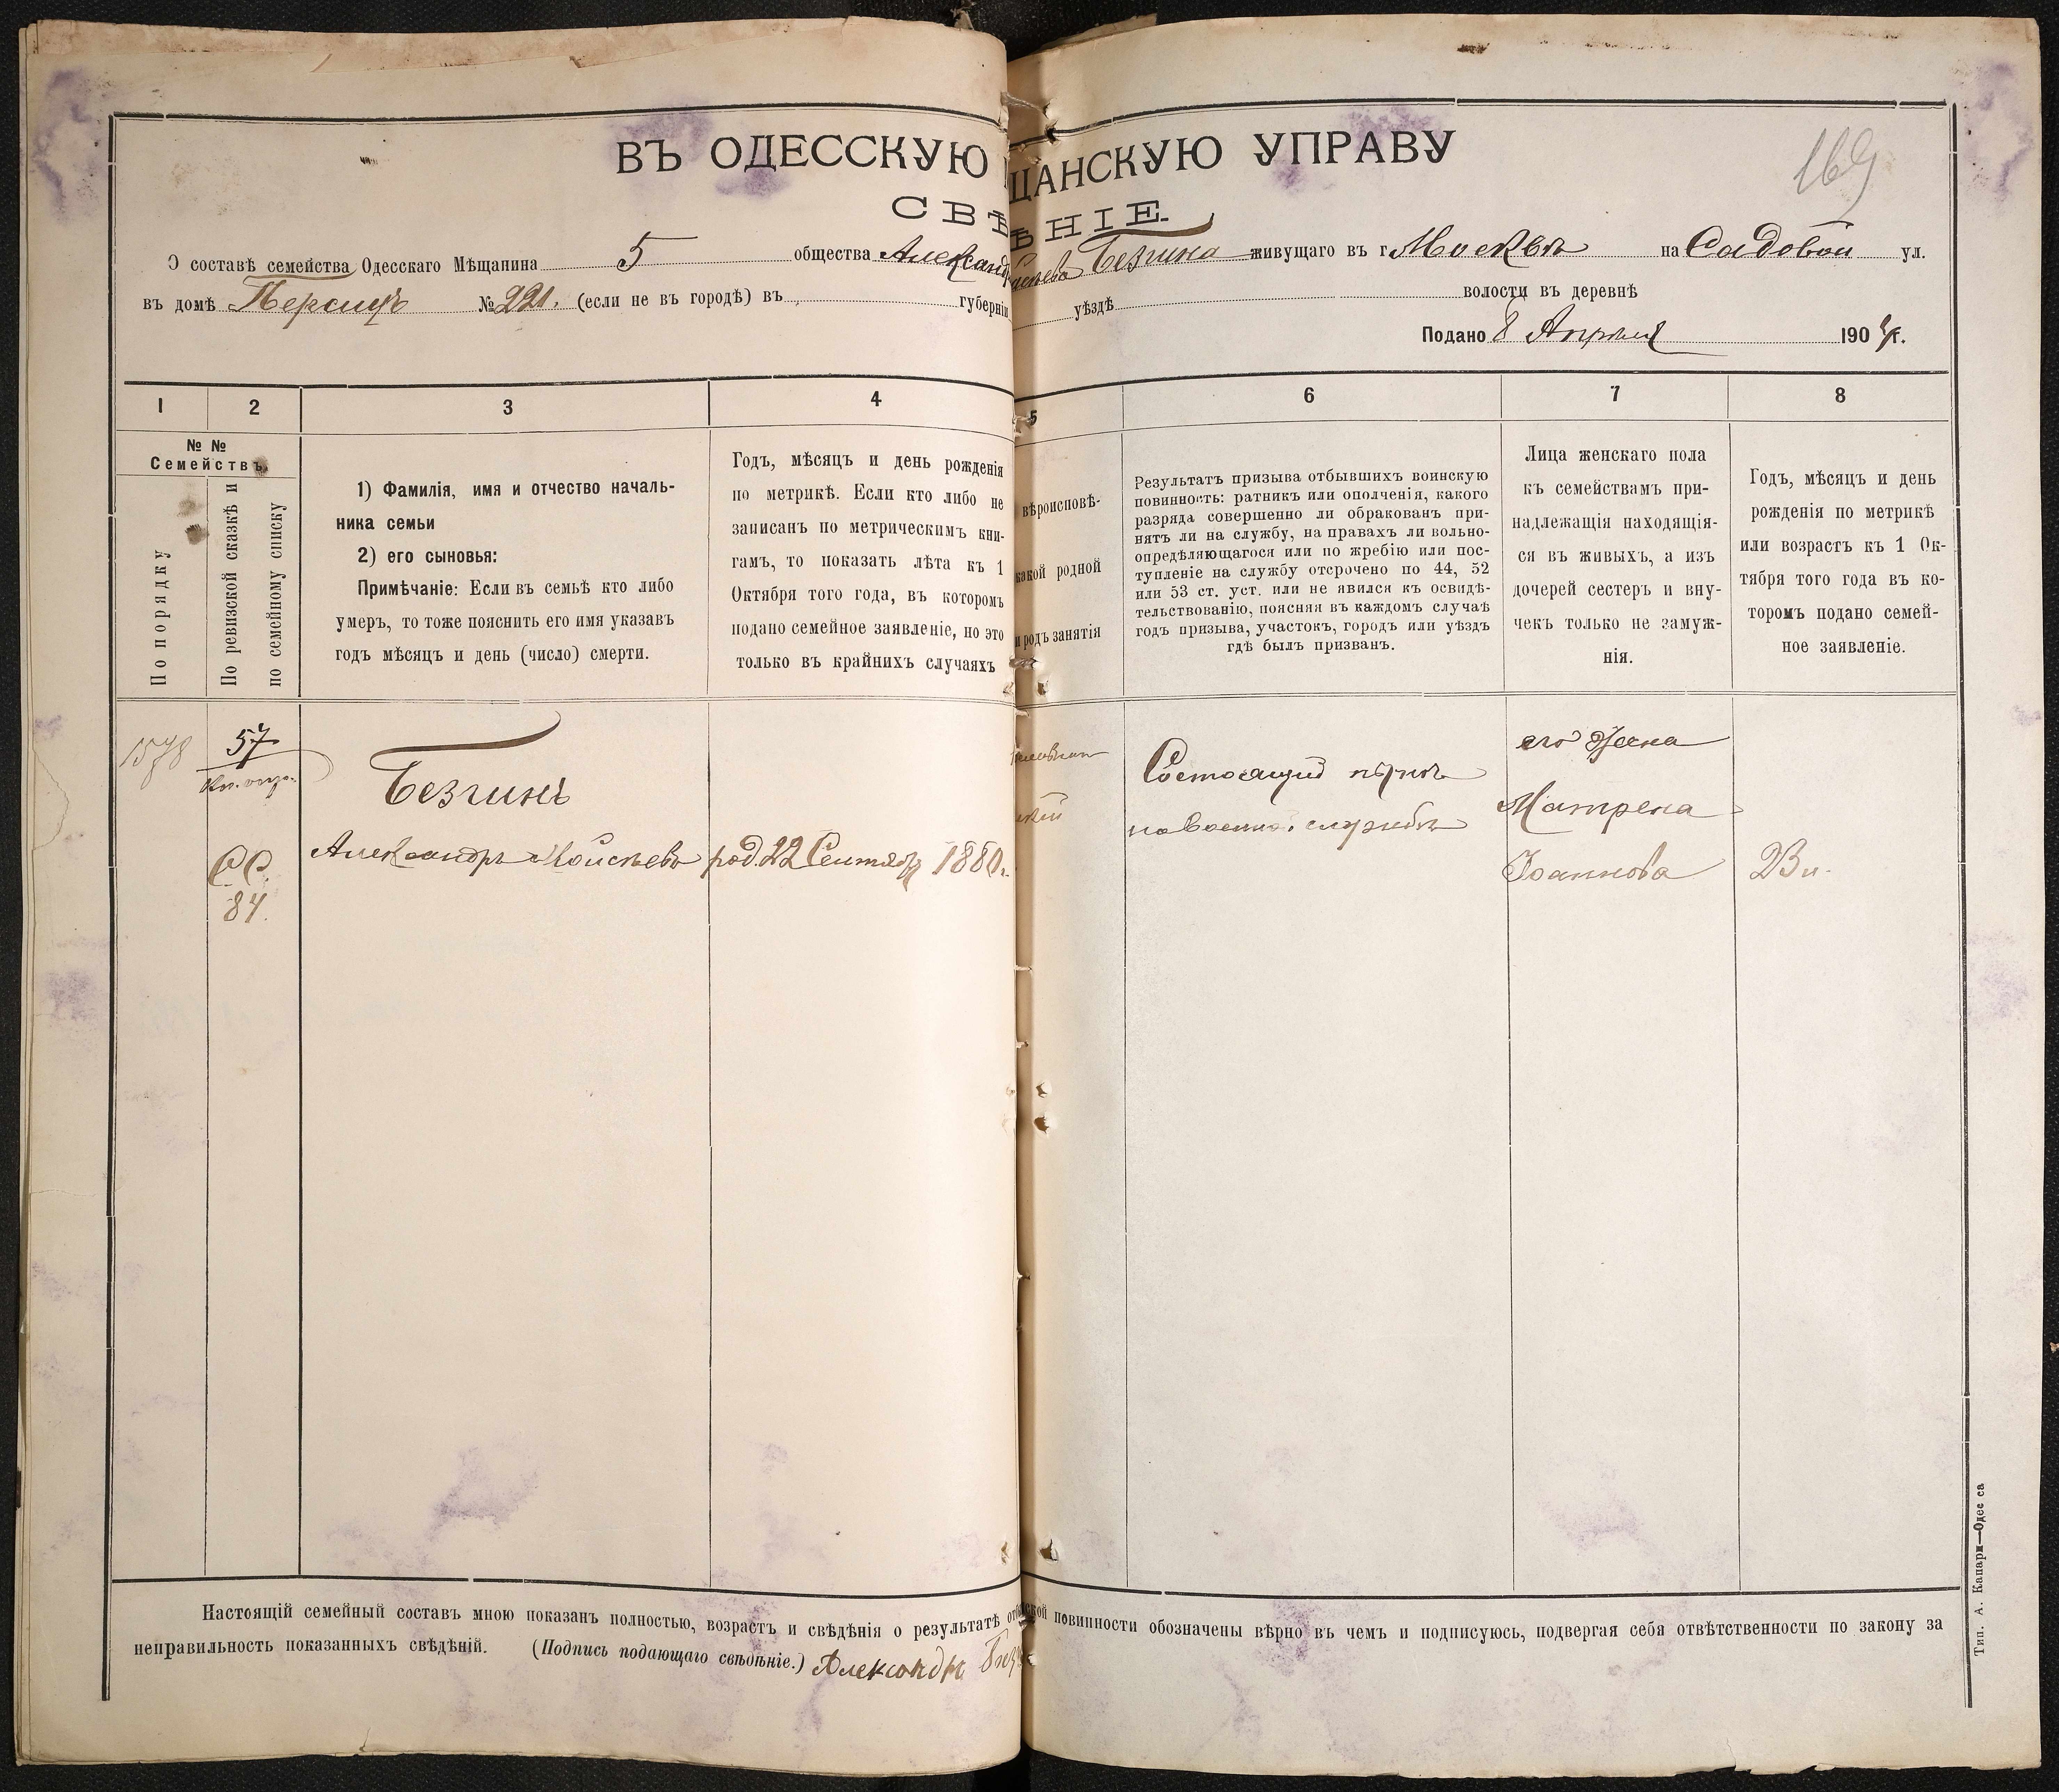 169
ВЪ ОДЕССКУЮ ЩАНСКУЮ УПРАВУ
СВѢ ѢНІЕ.
О составѣ семейства Одесскаго Мѣщанина 5 общества Александ сѣева Безгина живущаго въ г Москвѣ на Садовой ул.
въ домѣ Персицъ № 221. (если не въ городѣ) въ губерніи уѣздѣ волости въ деревнѣ
Подано 8 Апрѣля 1904 г.
1 2 3 4 5 6 7 8
№ №
Семействъ.
По порядку
По ревизской сказкѣ и
по семейному списку
1) Фамилія, имя и отчество началь-
ника семьи
2) его сыновья:
Примѣчаніе: Если въ семьѣ кто либо
умеръ, то тоже пояснить его имя указавъ
годъ мѣсяцъ и день (число) смерти.
Годъ, мѣсяцъ и день рожденія
по метрикѣ. Если кто либо не
записанъ по метрическимъ кни-
гамъ, то показать лѣта къ 1
Октября того года, въ которомъ
подано семейное заявленіе, но это
только въ крайнихъ случаяхъ
вѣроисповѣ-
какой родной
и родъ занятія
Результатъ призыва отбывшихъ воинскую
повинность: ратникъ или ополченія, какого
разряда совершенно ли обракованъ при-
нятъ ли на службу, на правахъ ли вольно-
опредѣляющагося или по жребію или пос-
тупленіе на службу отсрочено по 44, 52
или 53 ст. уст. или не явился къ освидѣ-
тельствованію, поясняя въ каждомъ случаѣ
годъ призыва, участокъ, городъ или уѣздъ
гдѣ былъ призванъ.
Лица женскаго пола
къ семействамъ при-
надлежащія находящія-
ся въ живыхъ, а изъ
дочерей сестеръ и вну-
чекъ только не замуж-
нія.
Годъ, мѣсяцъ и день
рожденія по метрикѣ
или возрастъ къ 1 Ок-
тября того года въ ко-
торомъ подано семей-
ное заявленіе.
1578
57
СС.
84.
Безгинъ
Александръ Мойсѣевъ
род. 22 Сентября 1880 г.
Состоящій нынѣ
на военной службѣ
его жена
Матрена
Іоаннова
23 л.
Настоящій семейный составъ мною показанъ полностью, возрастъ и свѣдѣнія о результатѣ от ской повинности обозначены вѣрно въ чемъ и подписуюсь, подвергая себя отвѣтственности по закону за
неправильность показанныхъ свѣдѣній. (Подпись подающаго свѣдѣніе.) Александръ Безг
Тип. А. Капари—Одесса